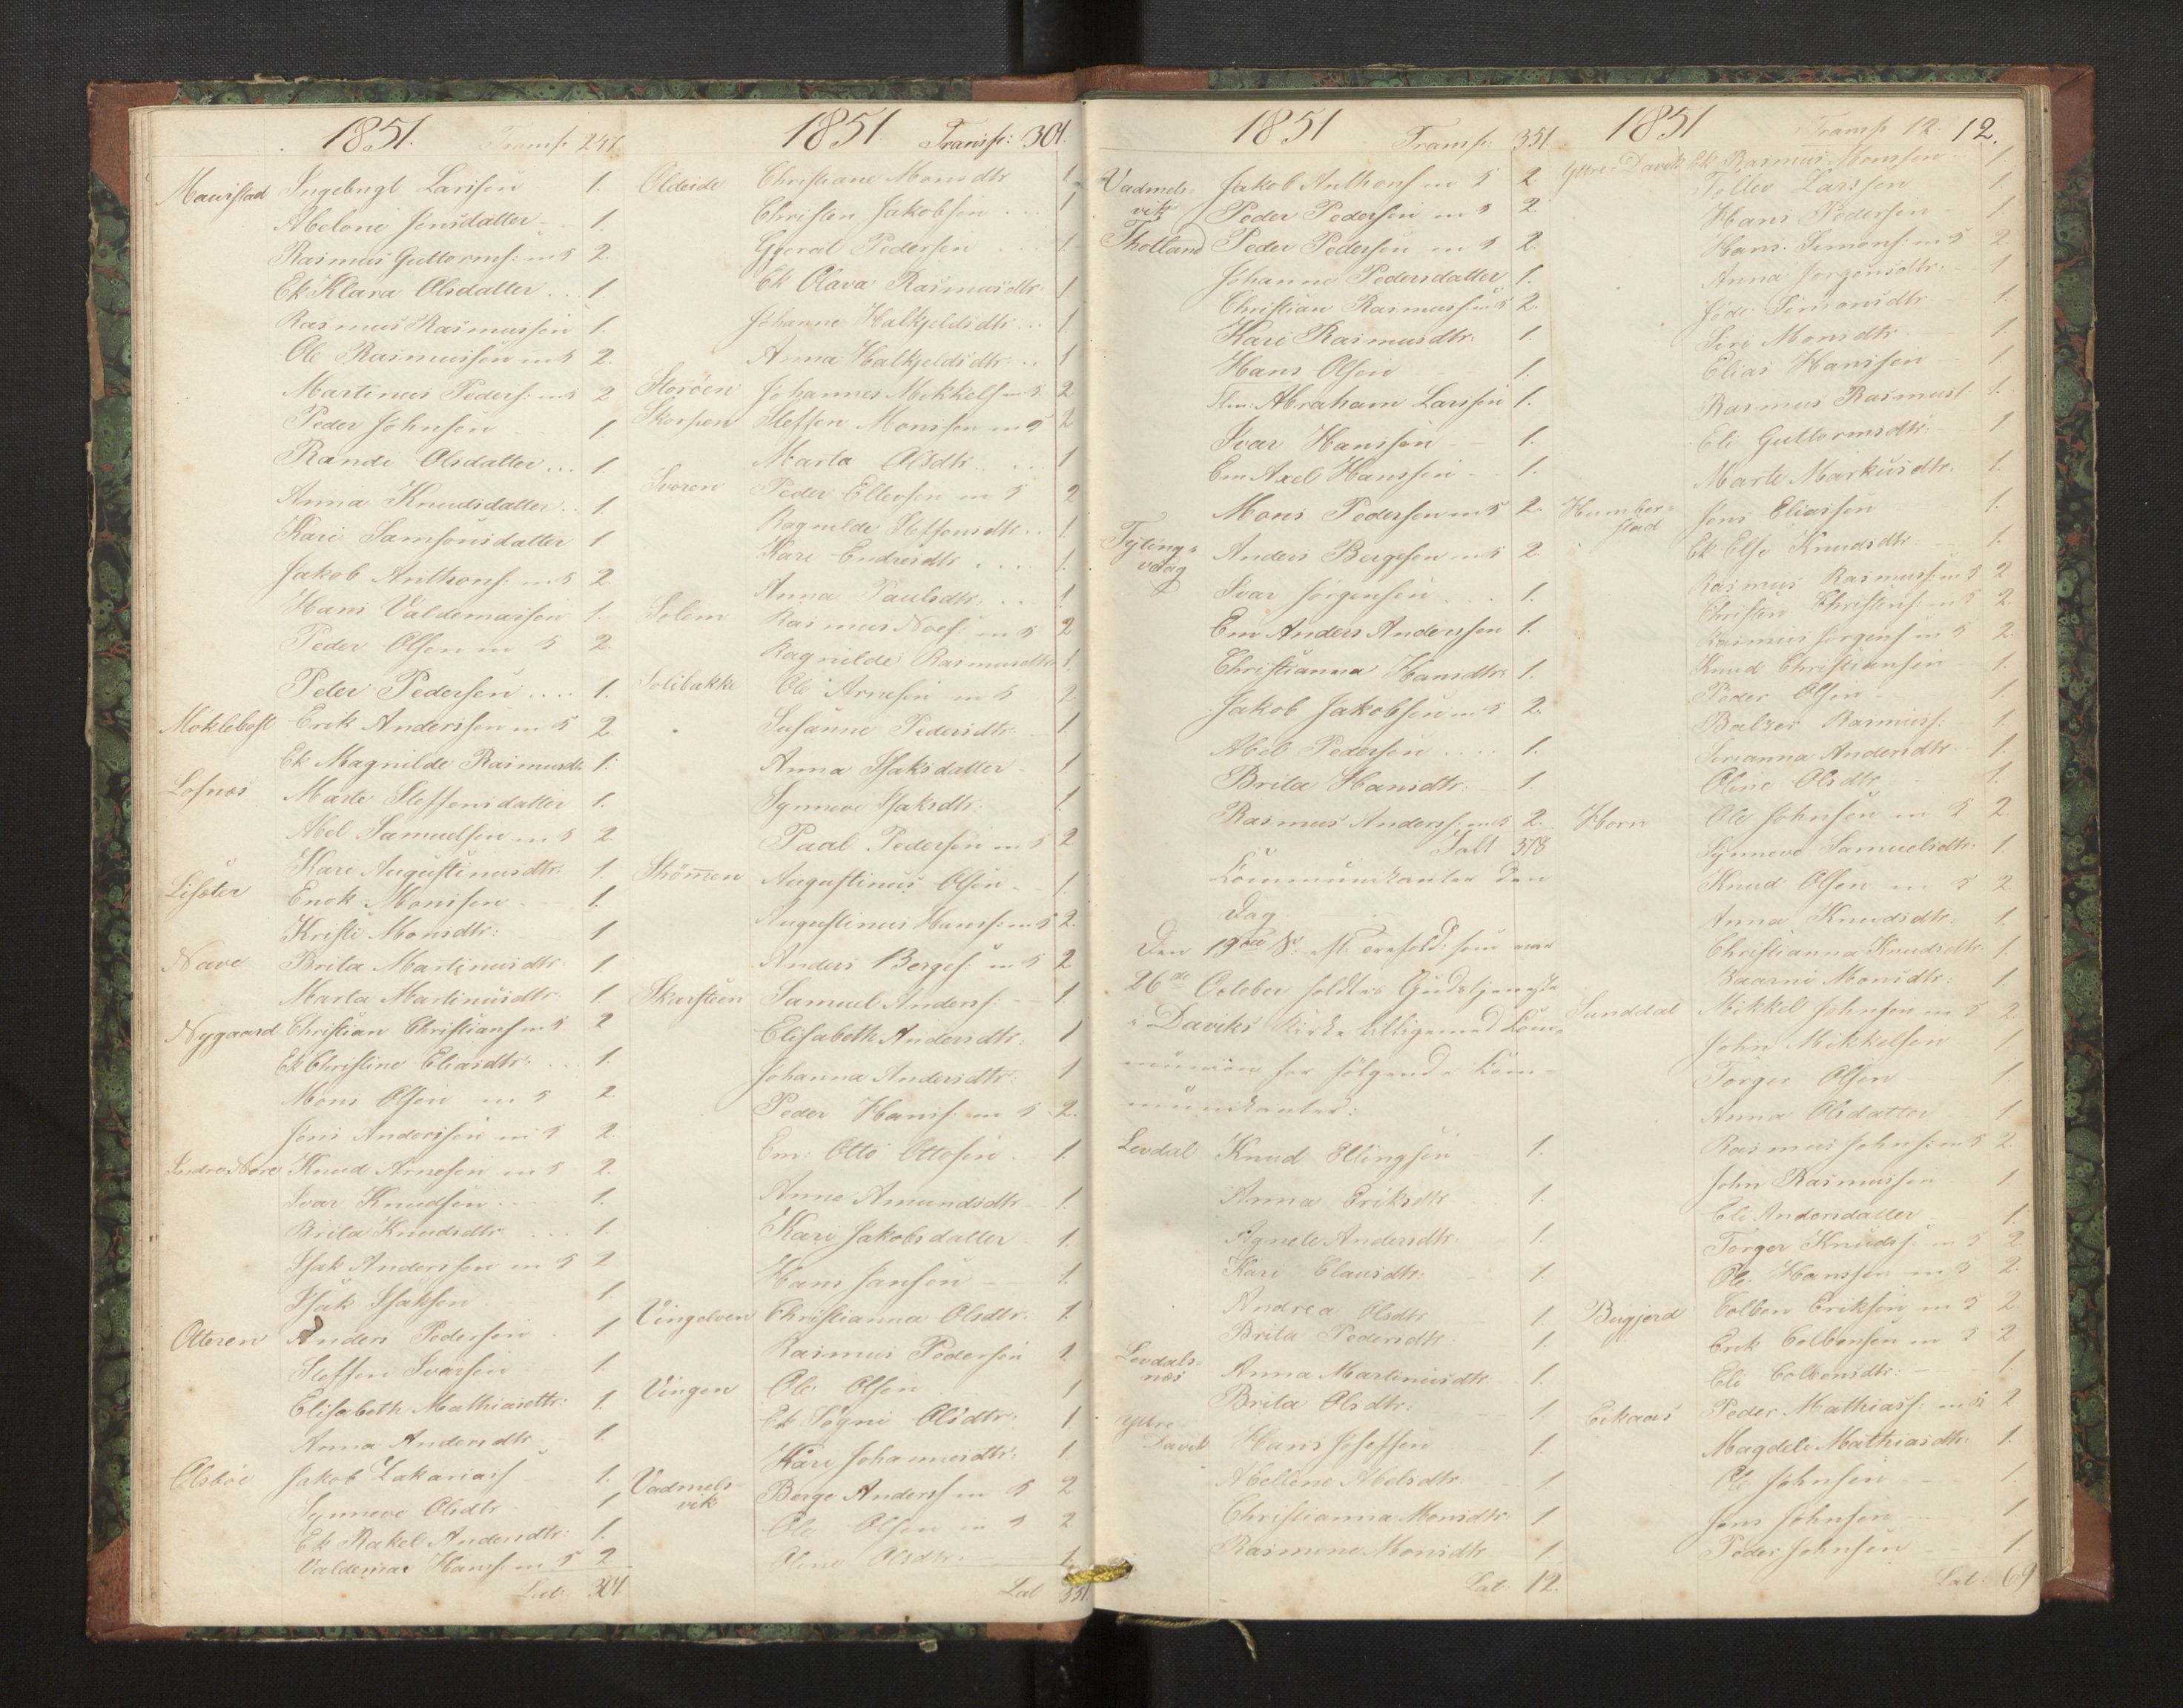 1851. Transp. 247.
Maurstad Ingebrigt Larssen 1.
Abelone Jensdatter 1.
Rasmus Guttorms: m 5 2.
Ek Klara Olsdatter 1.
Rasmus Rasmussen 1.
Ole Rasmussen m 5 2.
Martinus Peders: m 5 2
Peder Johnsen 1.
Rande Olsdatter 1.
Anna Knudsdatter 1
Kari Samsonsdatter 1
Jakob Anthons: m 5 2
Hans Valdemarsen 1.
Peder Olsen m 5 2
Peter Pedersen 1.
Moklebost Erik Anderssen m 5 2.
Ek Magnilde Rasmusdtr. 1.
Lofnes Marte Steffensdatter 1.
Abel Samuelsen m 5 2.
Kari Augustinusdtr. 1.
Lisæter Enok Monssen 1.
Kristi Monsdtr: 1
Nave Brita Martinusdtr 1.
Marta Martinusdtr 1.
Nygaard Christian Christians m 5 2
Ek Christine Eliasdtr: 1.
Mons Olsen m 5 2.
Jens Anderssen m 5 2.
Knud Arnesen m 5 2.
Ivar Knudsen 1.
Brita Knudsdtr 1.
Isak Anderssen m 5 2
Isak Isaksen 1.
Otteren Anders Pedersen 1
Steffen Ivarsen 1.
Elisabeth Mathiasdtr: 1.
Anna Andersdtr 1.
Jakob Zakarias 1.
Synneve Olsdtr 1.
Ek Rakel Andersdtr: 1.
Valdemar Hans: m 5 2
Lat: 301.
1851 Transp: 301.
Oldeide Christiane Monsdtr 1
Christen Jakobsen 1
Gjerat Pedersen 1
Ek Olava Rasmusdtr 1
Johanne Halkjeldsdtr 1
Anna Halkjeldsdtr 1
Storøen Johannes Mekkels m 5. 2
Skorpen Steffen Monssen m 5 2
Marta Olsdtr 1
Svoren Peder Ellevsen m 5 2
Ragnilde Steffensdtr 1.
Kari Endresdtr 1.
Anna Paulsdtr 1
Solem Rasmus Noes: m 5 2
Ragnilde Rasmusdtr 1.
Solibakke Ole Arnesen m 5 2.
Susanne Pedersdtr. 1.
Anna Isaksdatter 1
Synneve Isaksdtr. 1.
Paal Pedersen m 5 2
Strømmen Augustinus Olsen 1.
Augustinus Hans: m 5 2.
Anders Berges: m 5 2
Skarsteen Samuel Anders: 1.
Elisabeth Andersdtr: 1
Johanna Andersdtr: 1
Peder Hans: m 5 2.
Em: Otto Ottosen 1.
Anne Amundsdtr 1.
Kari Jakobsdatter 1.
Hans Jansen 1.
Vingelven Christianna Olsdtr. 1.
Rasmus Pedersen 1.
Vingen Ole Olsen 1
Ek Signi Olsdtr. 1
Kari Johannesdtr: 1
Vadmels
vik Berge Anders m 5 2
Ole Olsen m 5 2
Oline Olsdtr. 1.
Lat 351.
1851 Transp: 351.
Vadmels-
vik Jakob Anthons m 5 2
Peder Pedersen m 5 2.
Tholland Peder Pedersen m 5 2.
Johanne Pedersdatter 1.
Christian Rasmuss m 5 2.
Kari Rasmusdtr. 1.
Hans Olsen 1.
Abraham Larssen 1.
Ivar Hanssen 1.
Em Axel Hanssen 1.
Mons Pedersen m 5 2.
Tytings-
vaag Anders Bergesen m 5 2.
Ivar Jørgensen 1.
Em Anders Anderssen 1.
Christianna Hansdtr 1.
Jakob Jakobsen m 5 2.
Abel Pedersen 1.
Brita Hansdtr. 1.
Rasmus Anders: m 5 2.
Ialt 378
Kommunikanter den
Dag.
26de October holdtes Gudstjeneste
i Daviks Kirke tilligemed Kom-
munion for følgende Kom-
munikanter:
Levdal Knud Ellingsen 1.
Anna Eriksdtr 1.
Agnete Andersdtr. 1.
Kari Clausdtr: 1.
Andrea Olsdtr 1.
Brita Pedersdtr. 1.
Levdals-
nes Anna Martinusdtr 1.
Brita Olsdtr: 1.
Yttre-
Davik Hans Josefsen 1.
Abellene Abelsdtr 1.
Christianna Monsdtr 1.
Rasmine Monsdtr 1.
Lat: 12.
1851 Transp 12. 12.
Yttre-Davik Ek Rasmus Monssen 1.
Tollev Larssen 1.
Hans Pedersen 1
Hans Simons: m 5 2
Anna Jørgensdtr. 1
Simonsdtr 1.
Siri Monsdtr 1.
Elias Hanssen 1
Rasmus Rasmuss: 1.
Eli Guttormsdtr: 1
Marte Markusdtr. 1.
Humber-
stad Jens Eliassen 1.
Ek Else Knudsdtr. 1.
Rasmus Rasmuss: m 5 2
Christen Christens: m 5 2.
Rasmus Jørgens m 5 2.
Knud Christiansen 1
Peder Olsen 1.
Balzer Rasmuss: 1.
Sereanna Andersdtr. 1.
Oline Olsdtr 1.
Horn Ole Johnsen m 5 2.
Synneve Samuelsdtr. 1.
Knud Olsen m 5 2
Anna Knudsdtr: 1.
Christianna Knudsdtr. 1.
Monsdtr: 1
Sunddal Mikkel Johnsen m 5 2
John Mikkelsen 1
Torger Olsen 1.
Anna Olsdatter 1
Rasmus Johns: m 5 2
John Rasmussen 1
Eli Andersdatter 1.
Torger Knuds: m 5 2
Ole Hanssen m 5 2.
Bugjerd Colben Eriksen m 5 2
Erik Colbensen m 5 2
Eli Colbensdtr: 1.
Eikaas Peder Mathiass: m 5 2
Magdeli Mathiasdtr. 1.
Ole Johnsen 1.
Jens Johnsen 1
Peder Johnsen 1.
Lat: 69